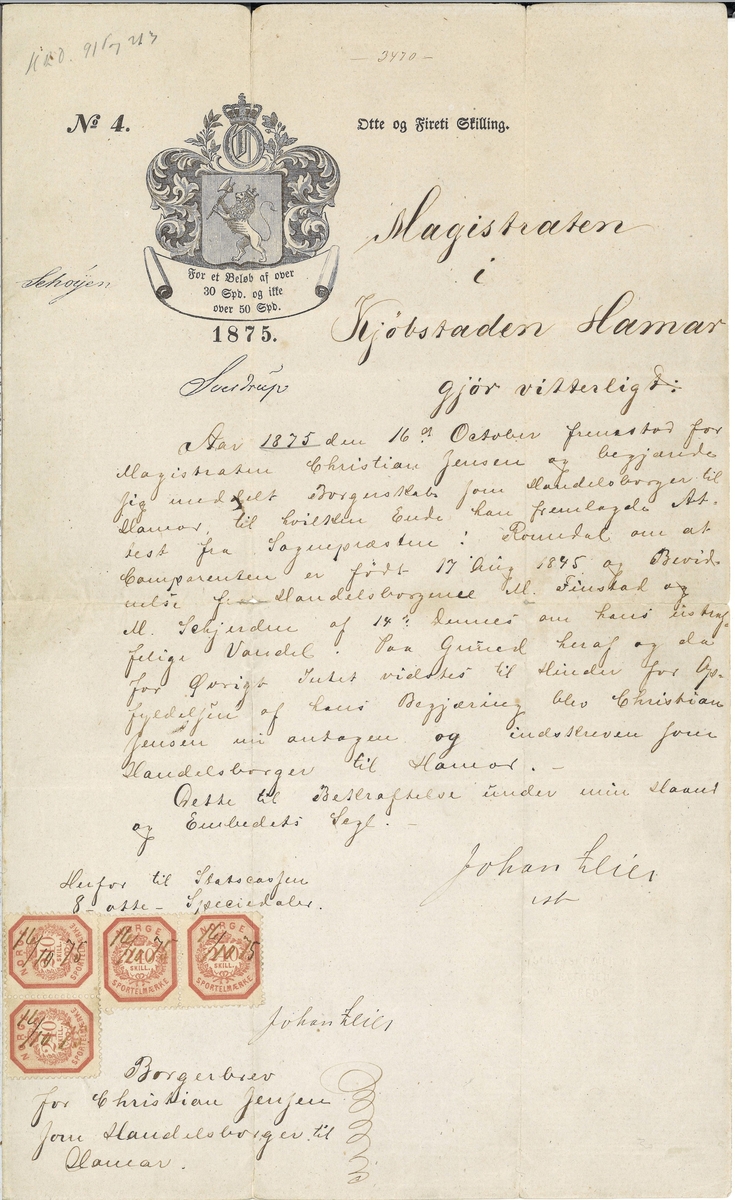 - 3470 -
No 4.
Otte og Fireti Skilling.
For et Beløb af over
30 Spd. og ikke
over 50 Spd.
1875.
Schøyen
Sverdrup
Magistraten
i
Kjöbstaden Hamar
gjör vitterligt:
Aar 1875 den 16de October fremstod for
Magistraten Christian Jensen og begjærede
sig meddelt Borgerskab som Handelsborger til
Hamar, til hvilken Ende han fremlagde At-
test fra Sognepræsten i Romdal om at
Comparenten er född 17 Aug 1845 og Bevid-
nelse fra Handelsborgerne M. Finstad og
M. Schjerden af 14de dennes om hans ustraf-
felige Vandel. Paa Grund heraf og da
for Øvrigt Intet vidstes til Hinder for Op-
fyldelsen af hans Begjæring blev Christian
Jensen nu antagen og indskreven som
Handelsborger til Hamar. -
Dette til Bekræftelse under min Haand
og Embedets Segl. -
Johan
Herfor til Statscassen
8 - otte - Speciedaler.
NORGE
240
SKILL.
SPORTELMÆRKE
16/10 75
NORGE
240
SKILL.
SPORTELMÆRKE
16/10 75
NORGE
240
SKILL.
SPORTELMÆRKE
16/10 75
NORGE
240
SKILL.
SPORTELMÆRKE
16/10 75
Johan
Borgerbrev
for Christian Jensen
som Handelsborger til
Hamar.